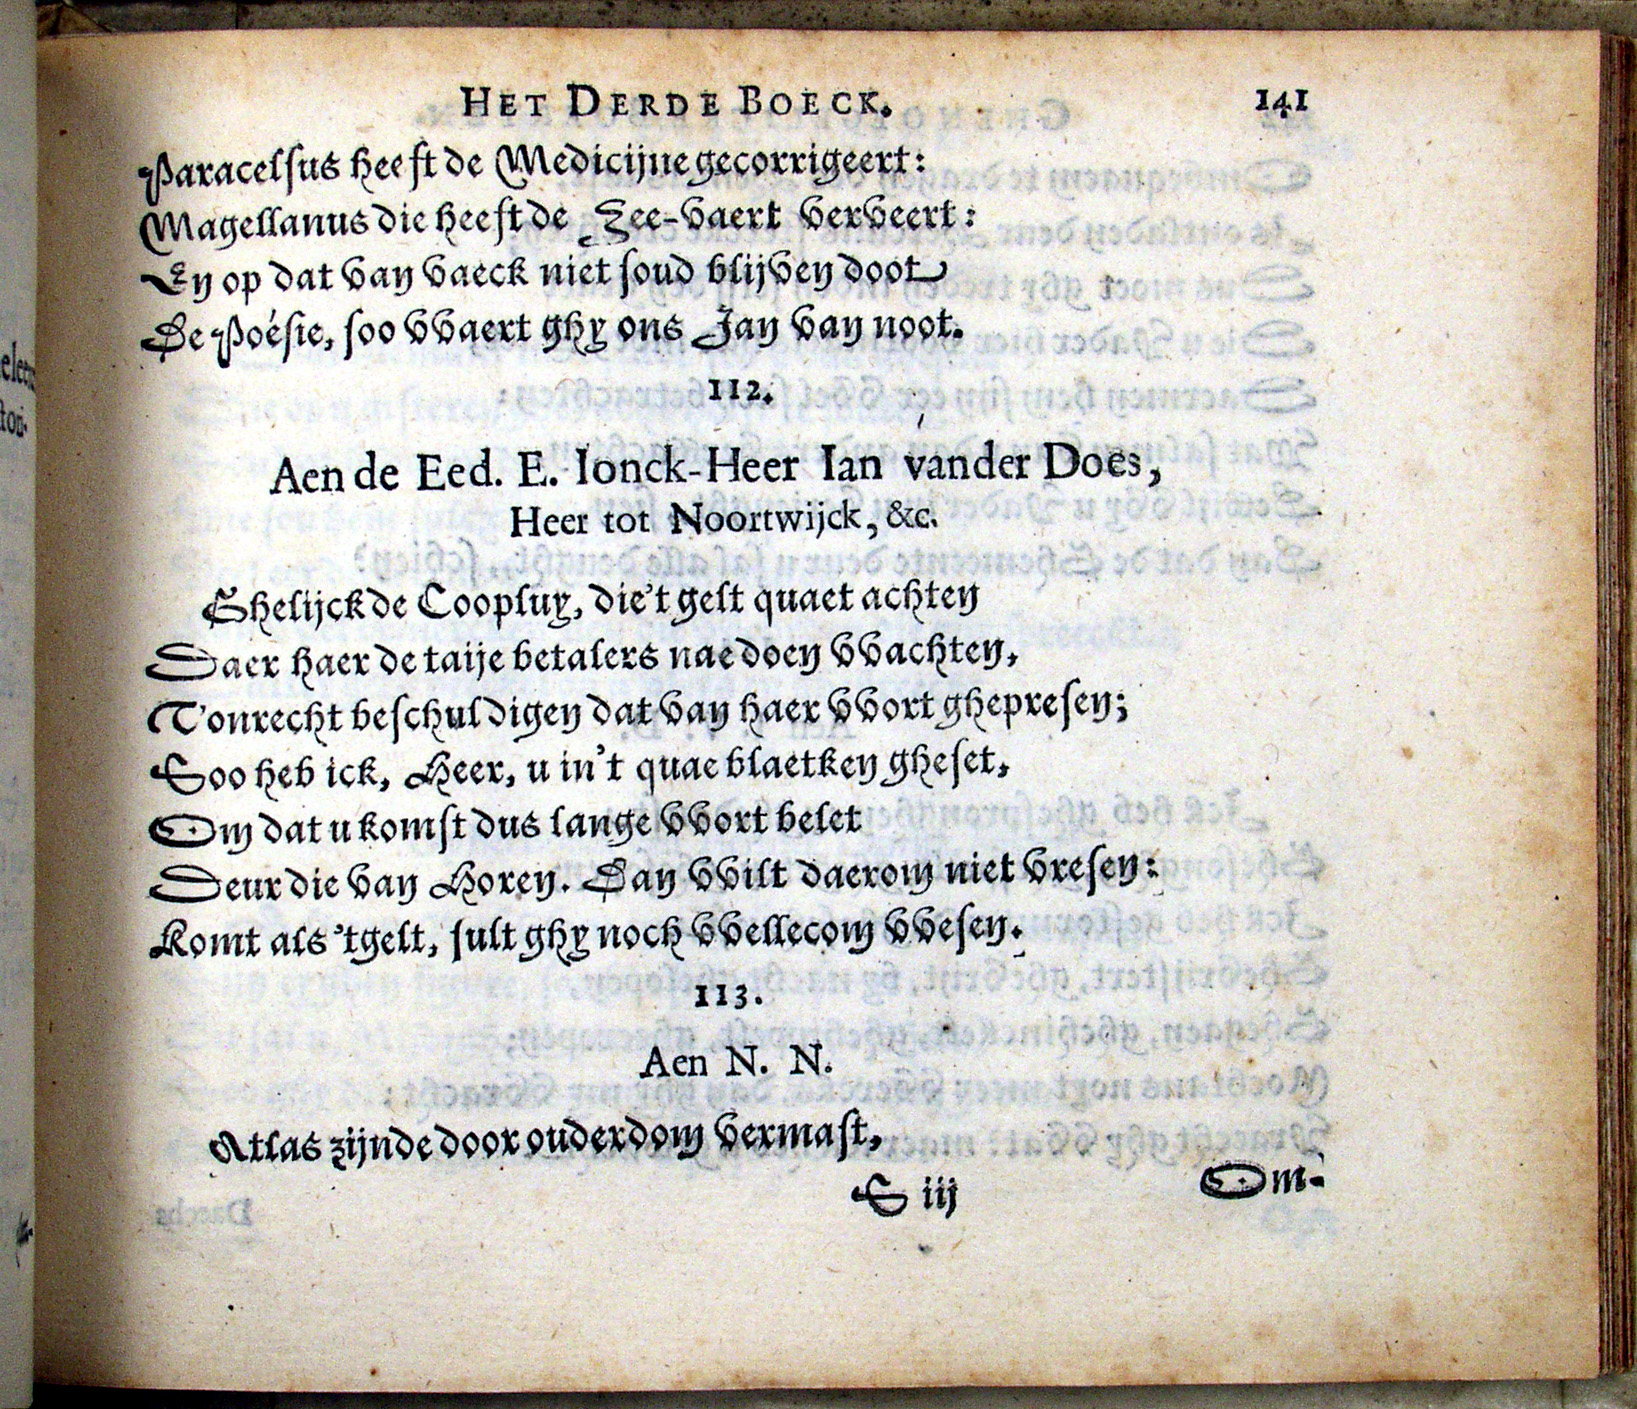 HET DERDE BOECK. 141
Paracelsus heeft de Medicijne gecorrigeert:
Magellanus die heeft de Zee-vaert verveert:
En op dat van vaeck niet soud blijven doot
De Poésie, soo vvaert ghy ons Jan van noot.
112.
Aen de Eed. E. Ionck-Heer Ian vander Does,
Heer tot Noortwijck, &c.
Ghelijck de Coopluy, die't gelt quaet achten
Daer haer de taije betalers nae doen vvachten,
T'onrecht beschuldigen dat van haer vvort ghepresen;
Soo heb ick, Heer, u in't quae blaetken gheset,
Om dat u komst dus lange vvort belet
Deur die van Horen. Dan vvilt daerom niet vresen:
Komt als 'tgelt, sult ghy noch vvellecom vvesen.
113.
Aen N. N.
Atlas zijnde door ouderdom vermast,
S iij Om-